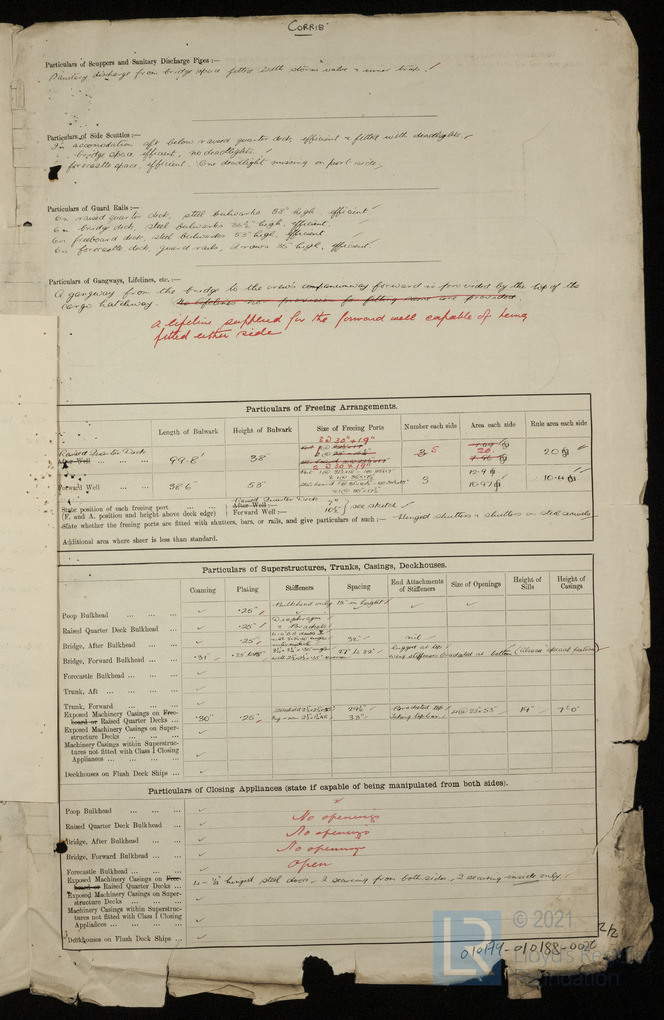 CORRIB
Particulars of Scuppers and Sanitary Discharge Pipes :—
Sanitary discharge from bridge space fitted with storm valve & inner trap.
Particulars of Side Scuttles :—
In accomodation aft below raised quarter deck, efficient & fitted with deadlights.
" bridge space, efficient, no deadlights.
" forecastle space, efficient. One deadlight missing on port side.
Particulars of Guard Rails :—
On raised quarter deck, steel bulwarks high, efficient
On bridge deck, steel bulwarks high, efficient.
On freeboard deck, steel bulwarks high, efficient
On forecastle deck, guard rails, 2 rows high, efficient
Particulars of Gangways, Lifelines, etc. :—
A gangway from the bridge to the crew's companionway forward is provided by the top of the
cargo hatchway. No lifelines nor provision for fitting same are provided.
A lifeline supplied for the forward well capable of being
fitted either side
Particulars of Freeing Arrangements.
Length of Bulwark Height of Bulwark Size of Freeing Ports Number each side Area each side Rule area each side
2 @ 30" × 19"
Raised Quarter Deck
After Well ... ... ... 99.8' 38" 3 5 20 20
2 @ 30" × 19"
Forward Well ... ... 38.6' 3 12.9 10.97 10.4
State position of each freeing port ... ... ... Raised Quarter Deck After Well :— 7"
(F. and A. position and height above deck edge) Forward Well :— see sketch
State whether the freeing ports are fitted with shutters, bars, or rails, and give particulars of such :— Hinged shutters & shutters on steel
Additional area where sheer is less than standard.
Particulars of Superstructures, Trunks, Casings, Deckhouses.
Coaming Plating Stiffeners Spacing End Attachments of Stiffeners Size of Openings Height of Sills Height of Casings
Poop Bulkhead ... ... ... ✓ .25" Bulkhead only 18" in height ✓ ✓
Raised Quarter Deck Bulkhead ... ✓ .25" Diaphragm & Brackets
Bridge, After Bulkhead ... ... ✓ .25" 32" nil
Bridge, Forward Bulkhead ... ... .31" 27" to 32" bracketed at bottom
Forecastle Bulkhead ... ... ✓
Trunk, Aft ... ... ... ✓
Trunk, Forward ... ... ✓
Exposed Machinery Casings on Free-
board or Raised Quarter Decks ... .30" .25" 33" Bracketed top 19" 7'0"
Exposed Machinery Casings on Super-
structure Decks ... ... ... ✓
Machinery Casings within Superstruc-
tures not fitted with Class I Closing
Appliances ... ... ... ✓
Deckhouses on Flush Deck Ships ... ✓
Particulars of Closing Appliances (state if capable of being manipulated from both sides).
Poop Bulkhead ... ... ... ✓ ✓
Raised Quarter Deck Bulkhead ... ✓ No openings
Bridge, After Bulkhead ... ... ✓ No openings
Bridge, Forward Bulkhead ... ... ✓ No openings
Forecastle Bulkhead ... ... ✓ Open
Exposed Machinery Casings on Free-
board or Raised Quarter Decks ... hinged steel doors, 2 securing from both sides, 2 securing inside only.
Exposed Machinery Casings on Super-
structure Decks ... ... ... ✓
Machinery Casings within Superstruc-
tures not fitted with Class I Closing
Appliances ... ... ... ✓
Deckhouses on Flush Deck Ships ... ✓
2/2
010179-010188-0020
LR
© 2021
Lloyd's Register
Foundation